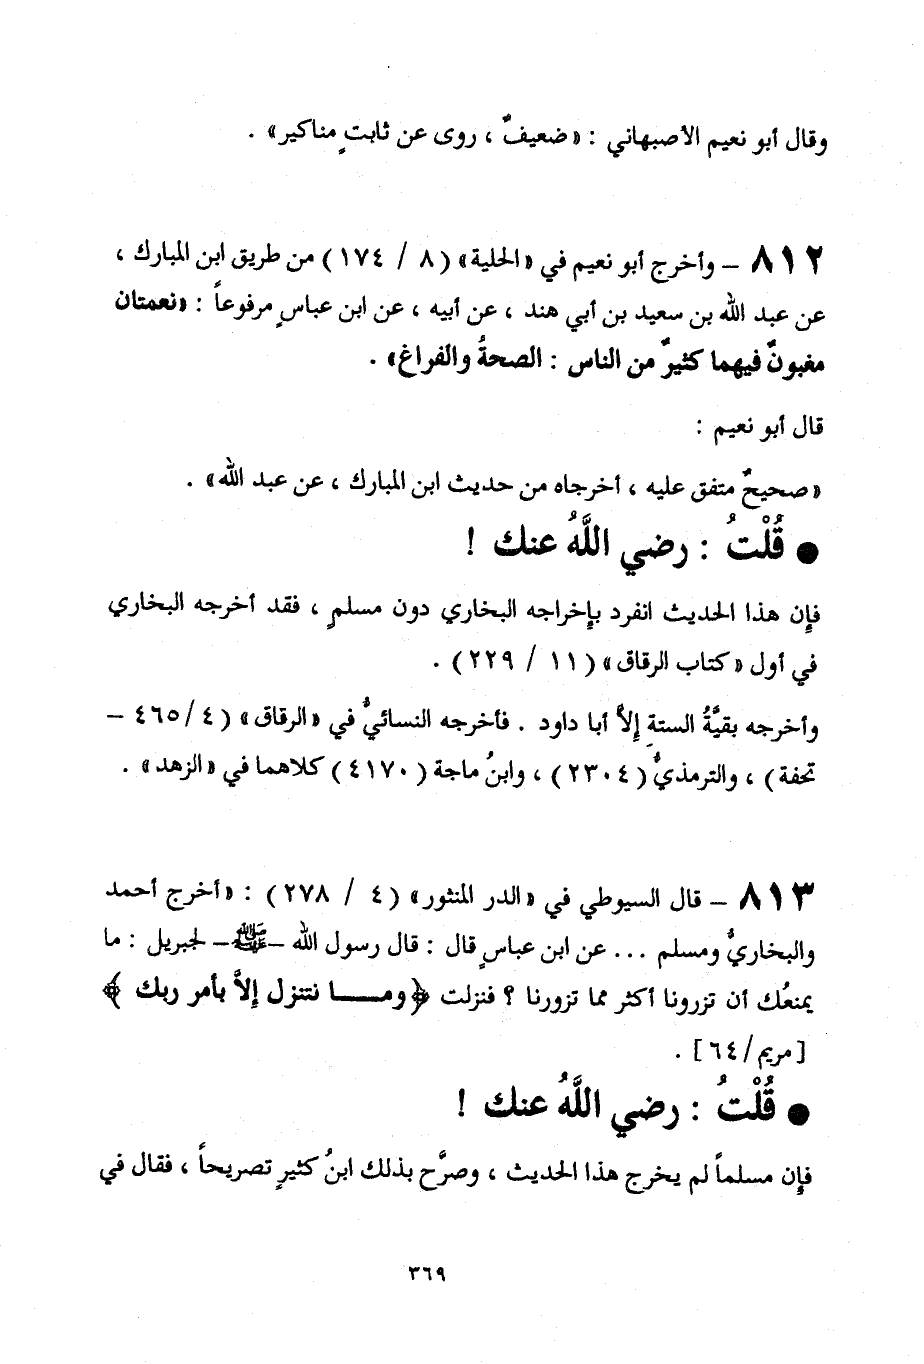 وقال أبو نعيم الأصبهاني : «ضعيفٌ ، روى عن ثابتٍ مناكير» .
٨١٢ – وأخرج أبو نعيم في «الحلية» (٨ / ١٧٤) من طريق ابن المبارك ،
عن عبد الله بن سعيد بن أبي هند ، عن أبيه ، عن ابن عباسٍ مرفوعاً : «نعمتان
مغبونٌ فيهما كثيرٌ من الناس : الصحةُ والفراغ» .
قال أبو نعيم :
«صحيحٌ متفق عليه ، أخرجاه من حديث ابن المبارك ، عن عبد الله» .
● قُلْتُ : رضي اللَّهُ عنك !
فإن هذا الحديث انفرد بإخراجه البخاري دون مسلمٍ ، فقد أخرجه البخاري
في أول «كتاب الرقاق» (١١ / ٢٢٩) .
وأخرجه بقيَّةُ الستةِ إلاَّ أبا داود . فأخرجه النسائيُّ في «الرقاق» (٤ /٤٦٥ –
تحفة) ، والترمذيُّ (٢٣٠٤) ، وابنُ ماجة (٤١٧٠) كلاهما في «الزهد» .
٨١٣ – قال السيوطي في «الدر المنثور» (٤ / ٢٧٨) : «أخرج أحمد
والبخاريُّ ومسلم ... عن ابن عباسٍ قال : قال رسول الله –ﷺ– لجبريل : ما
يمنعُك أن تزرونا أكثر مما تزورنا ؟ فنزلت ﴿ومــــا نتنزل إلاَّ بأمر ربك ﴾
[مريم/ ٦٤] .
● قُلْتُ : رضي اللَّهُ عنك !
فإن مسلماً لم يخرج هذا الحديث ، وصرَّح بذلك ابنُ كثيرٍ تصريحاً ، فقال في
٣٦٩